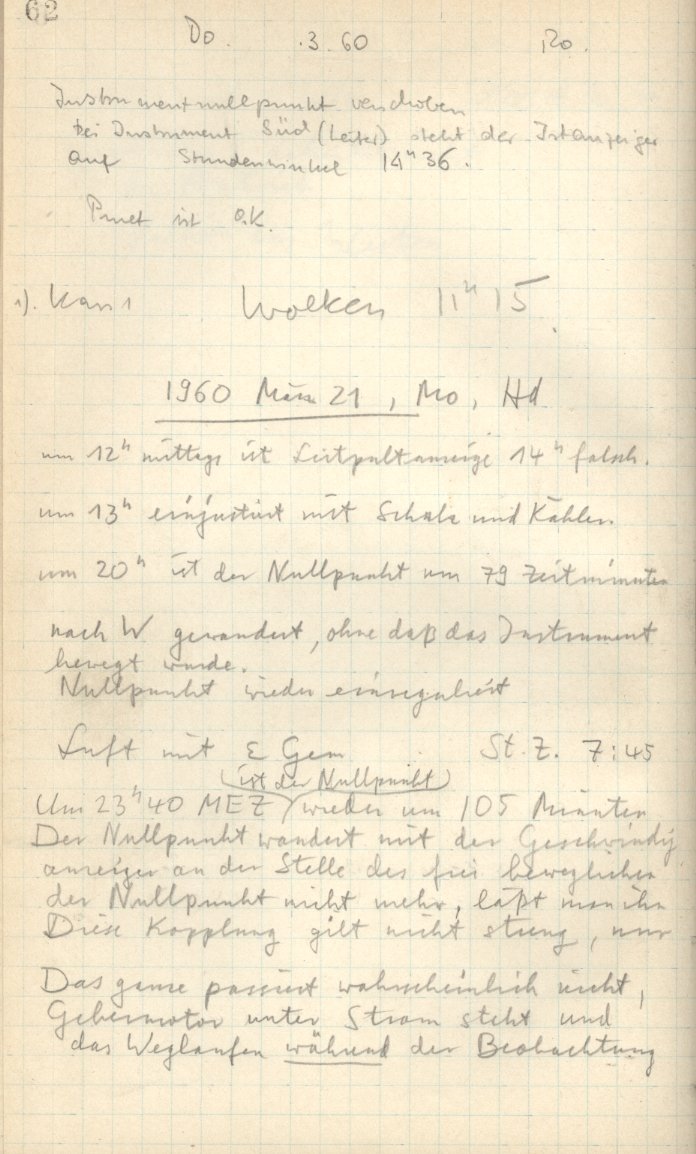 62
Do. .3.60 Ro.
Instrumentnullpunkt verschoben
bei Instrument Süd (Leiter) steht der Istanzeiger
auf Stundenwinkel 14h 36.
ist O.K.
1). Wolken 11h 15
1960 März 21, Mo, Hd
um 12h mittags ist Leitpultanzeige 14h falsch.
um 13h einjustiert mit Schulz und Kähler.
um 20h ist der Nullpunkt um 79 Zeitminuten
nach W gewandert, ohne daß das Instrument
bewegt wurde.
Nullpunkt wieder einreguliert
Luft mit ε Gem St. Z. 7:45
(ist der Nullpunkt)
Um 23h 40 MEZ wieder um 105 Minuten
Der Nullpunkt wandert mit der Geschwindig
anzeiger an der Stelle des frei beweglichen
der Nullpunkt nicht mehr, läßt man ihn
Diese Kopplung gilt nicht streng, nur
Das ganze passiert wahrscheinlich nicht,
Gebermotor unter Strom steht und
das Weglaufen während der Beobachtung